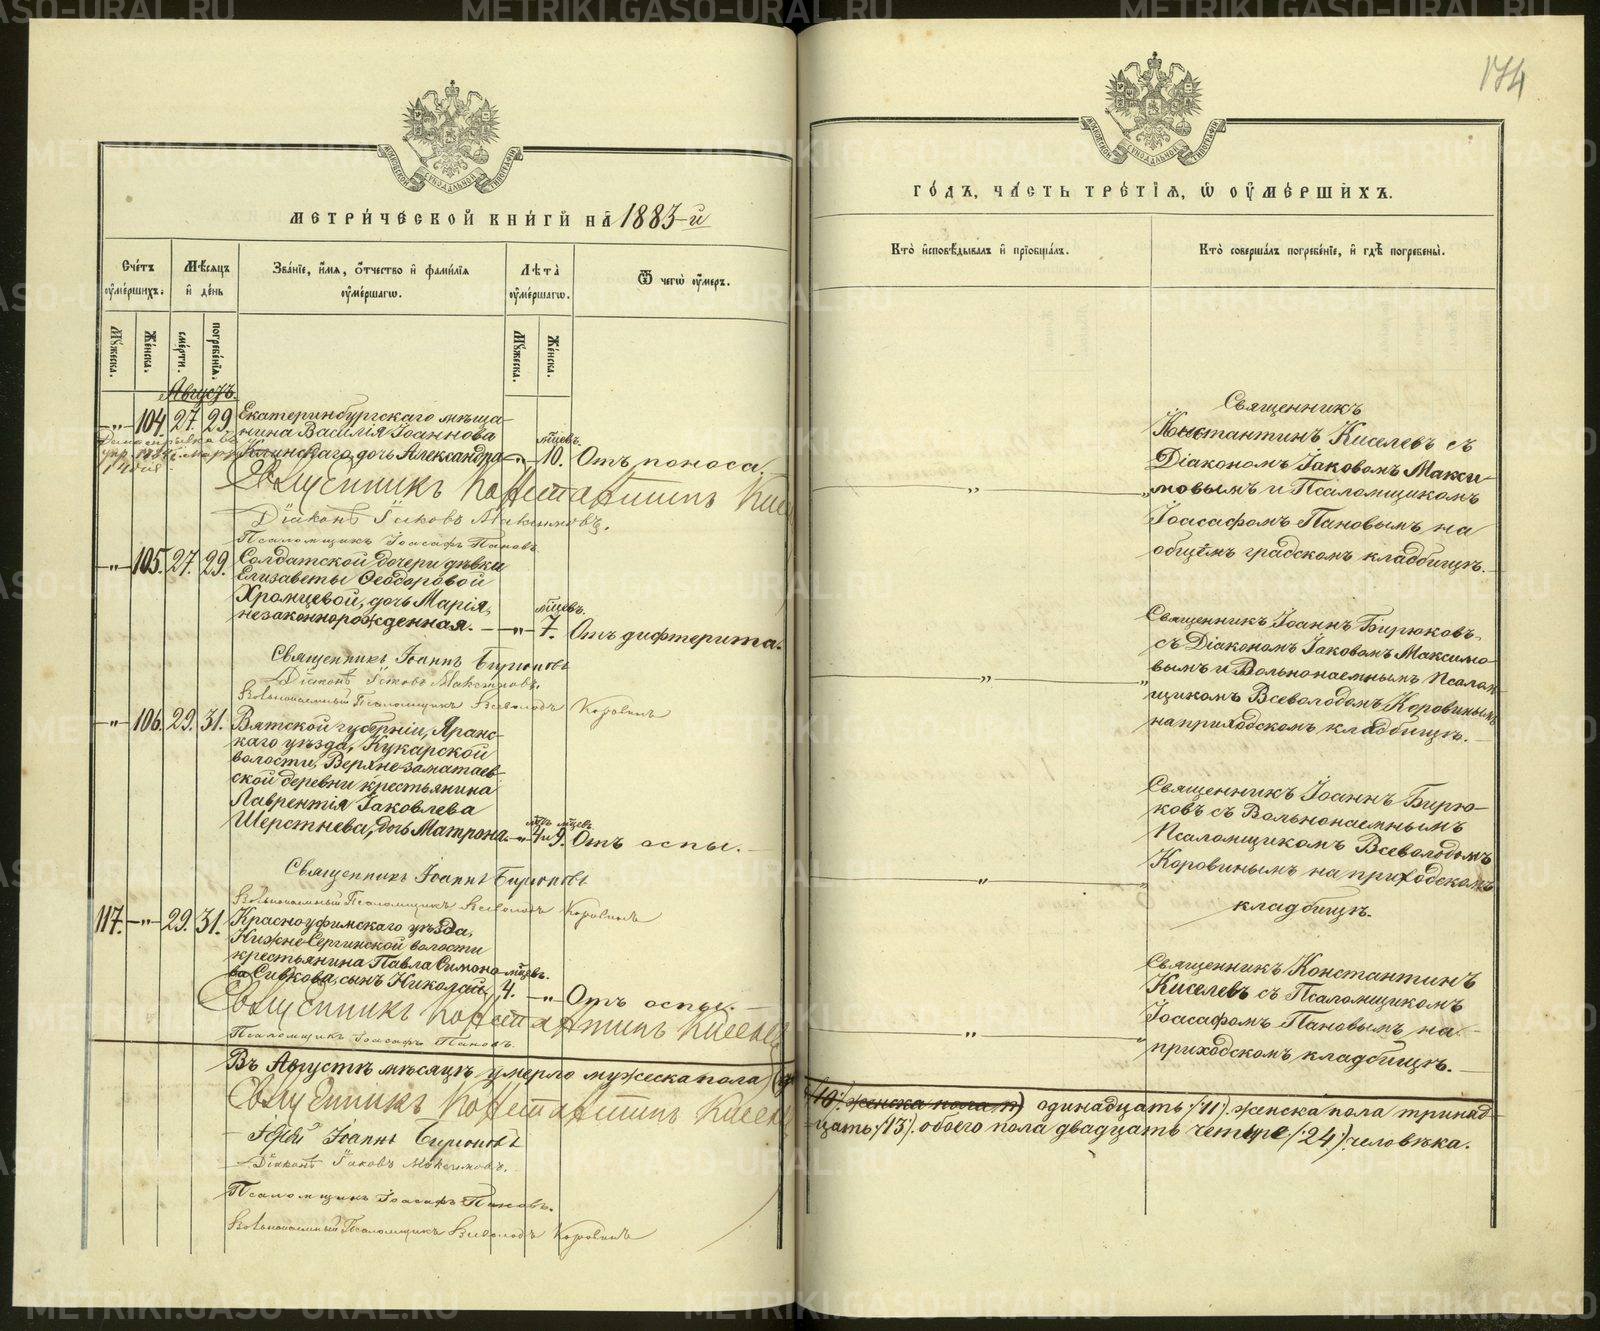 174
МЕТРИЧЕСКОЙ КНИГИ НА 1883-й
ГОДЪ, ЧАСТЬ ТРЕТІЯ, Ѡ ОУМЕРШИХЪ.
Счетъ оумершихъ.
Мѣсяцъ и день
Званіе, имя, отчество и фамилія оумершагѡ.
Лѣта оумершагѡ.
Ѿ чегѡ оумеръ.
Кто исповѣдывалъ и пріобщалъ.
Кто совершалъ погребеніе, и гдѣ погребены.
Мужеска.
Женска.
смерти.
погребенія.
Мужеска.
Женска.
Августъ.
-„- 104. 27. 29. Екатеринбургскаго мѣща-
нина Василія Іоаннова
Клинскаго, дочь Александра -„- мѣсцевъ. 10. Отъ поноса.
Священникъ Константинъ Кисе
Діаконъ Іаковъ Максимовъ.
Псаломщикъ Іоасафъ Пановъ
Священникъ
Константинъ Киселевъ съ
Діакономъ Іаковомъ Макси-
мовымъ и Псаломщикомъ
Іоасафомъ Пановымъ на
общемъ градскомъ кладбищѣ.
-„- 105. 27. 29. Солдатской дочери дѣвки
Елизаветы Ѳеодоровой
Хромцевой, дочь Марія,
незаконнорожденная. -„- мѣсцевъ. 7. Отъ дифтерита.
Священникъ Іоаннъ Бирюковъ
Діаконъ Іаковъ Максимовъ.
Вольнонаемный Псаломщикъ Всеволодъ Коровинъ
Священникъ Іоаннъ Бирюковъ
съ Діакономъ Іаковомъ Максимо-
вымъ и Вольнонаемнымъ Псалом-
щикомъ Всеволодомъ Коровинымъ
на приходскомъ кладбищѣ.
-„- 106. 29. 31. Вятской губерніи, Яранс-
каго уѣзда, Кукарской
волости, Верхне-заматаев-
ской деревни крестьянина
Лаврентія Іаковлева
Шерстнева, дочь Матрона. -„- 4 и 9. Отъ оспы.
Священникъ Іоаннъ Бирюковъ
Вольнонаемный Псаломщикъ Всеволодъ Коровинъ
Священникъ Іоаннъ Бирю-
ковъ съ Вольнонаемнымъ
Псаломщикомъ Всеволодомъ
Коровинымъ на приходскомъ
кладбищѣ.
117. -„- 29. 31. Красноуфимскаго уѣзда,
Нижне-Сергинской волости
крестьянина Павла Симоно-
ва Сивкова, сынъ Николай. мѣсцевъ. 4. -„- Отъ оспы.
Священникъ Константинъ Киселев
Псаломщикъ Іоасафъ Пановъ.
Священникъ Константинъ
Киселевъ съ Псаломщикомъ
Іоасафомъ Пановымъ на
приходскомъ кладбищѣ.
Въ Августѣ мѣсяцѣ умерло мужеска пола
/10/. женска пола одинадцать /11/. женска пола тринад-
цать /13/. обоего пола двадцать четыре /24/. человѣка.
Священникъ Константинъ Киселе
Іерей Іоаннъ Бирюковъ
Діаконъ Іаковъ Максимовъ.
Псаломщикъ Іоасафъ Пановъ.
Вольнонаемный Псаломщикъ Всеволодъ Коровинъ
METRIKI.GASO-URAL.RU